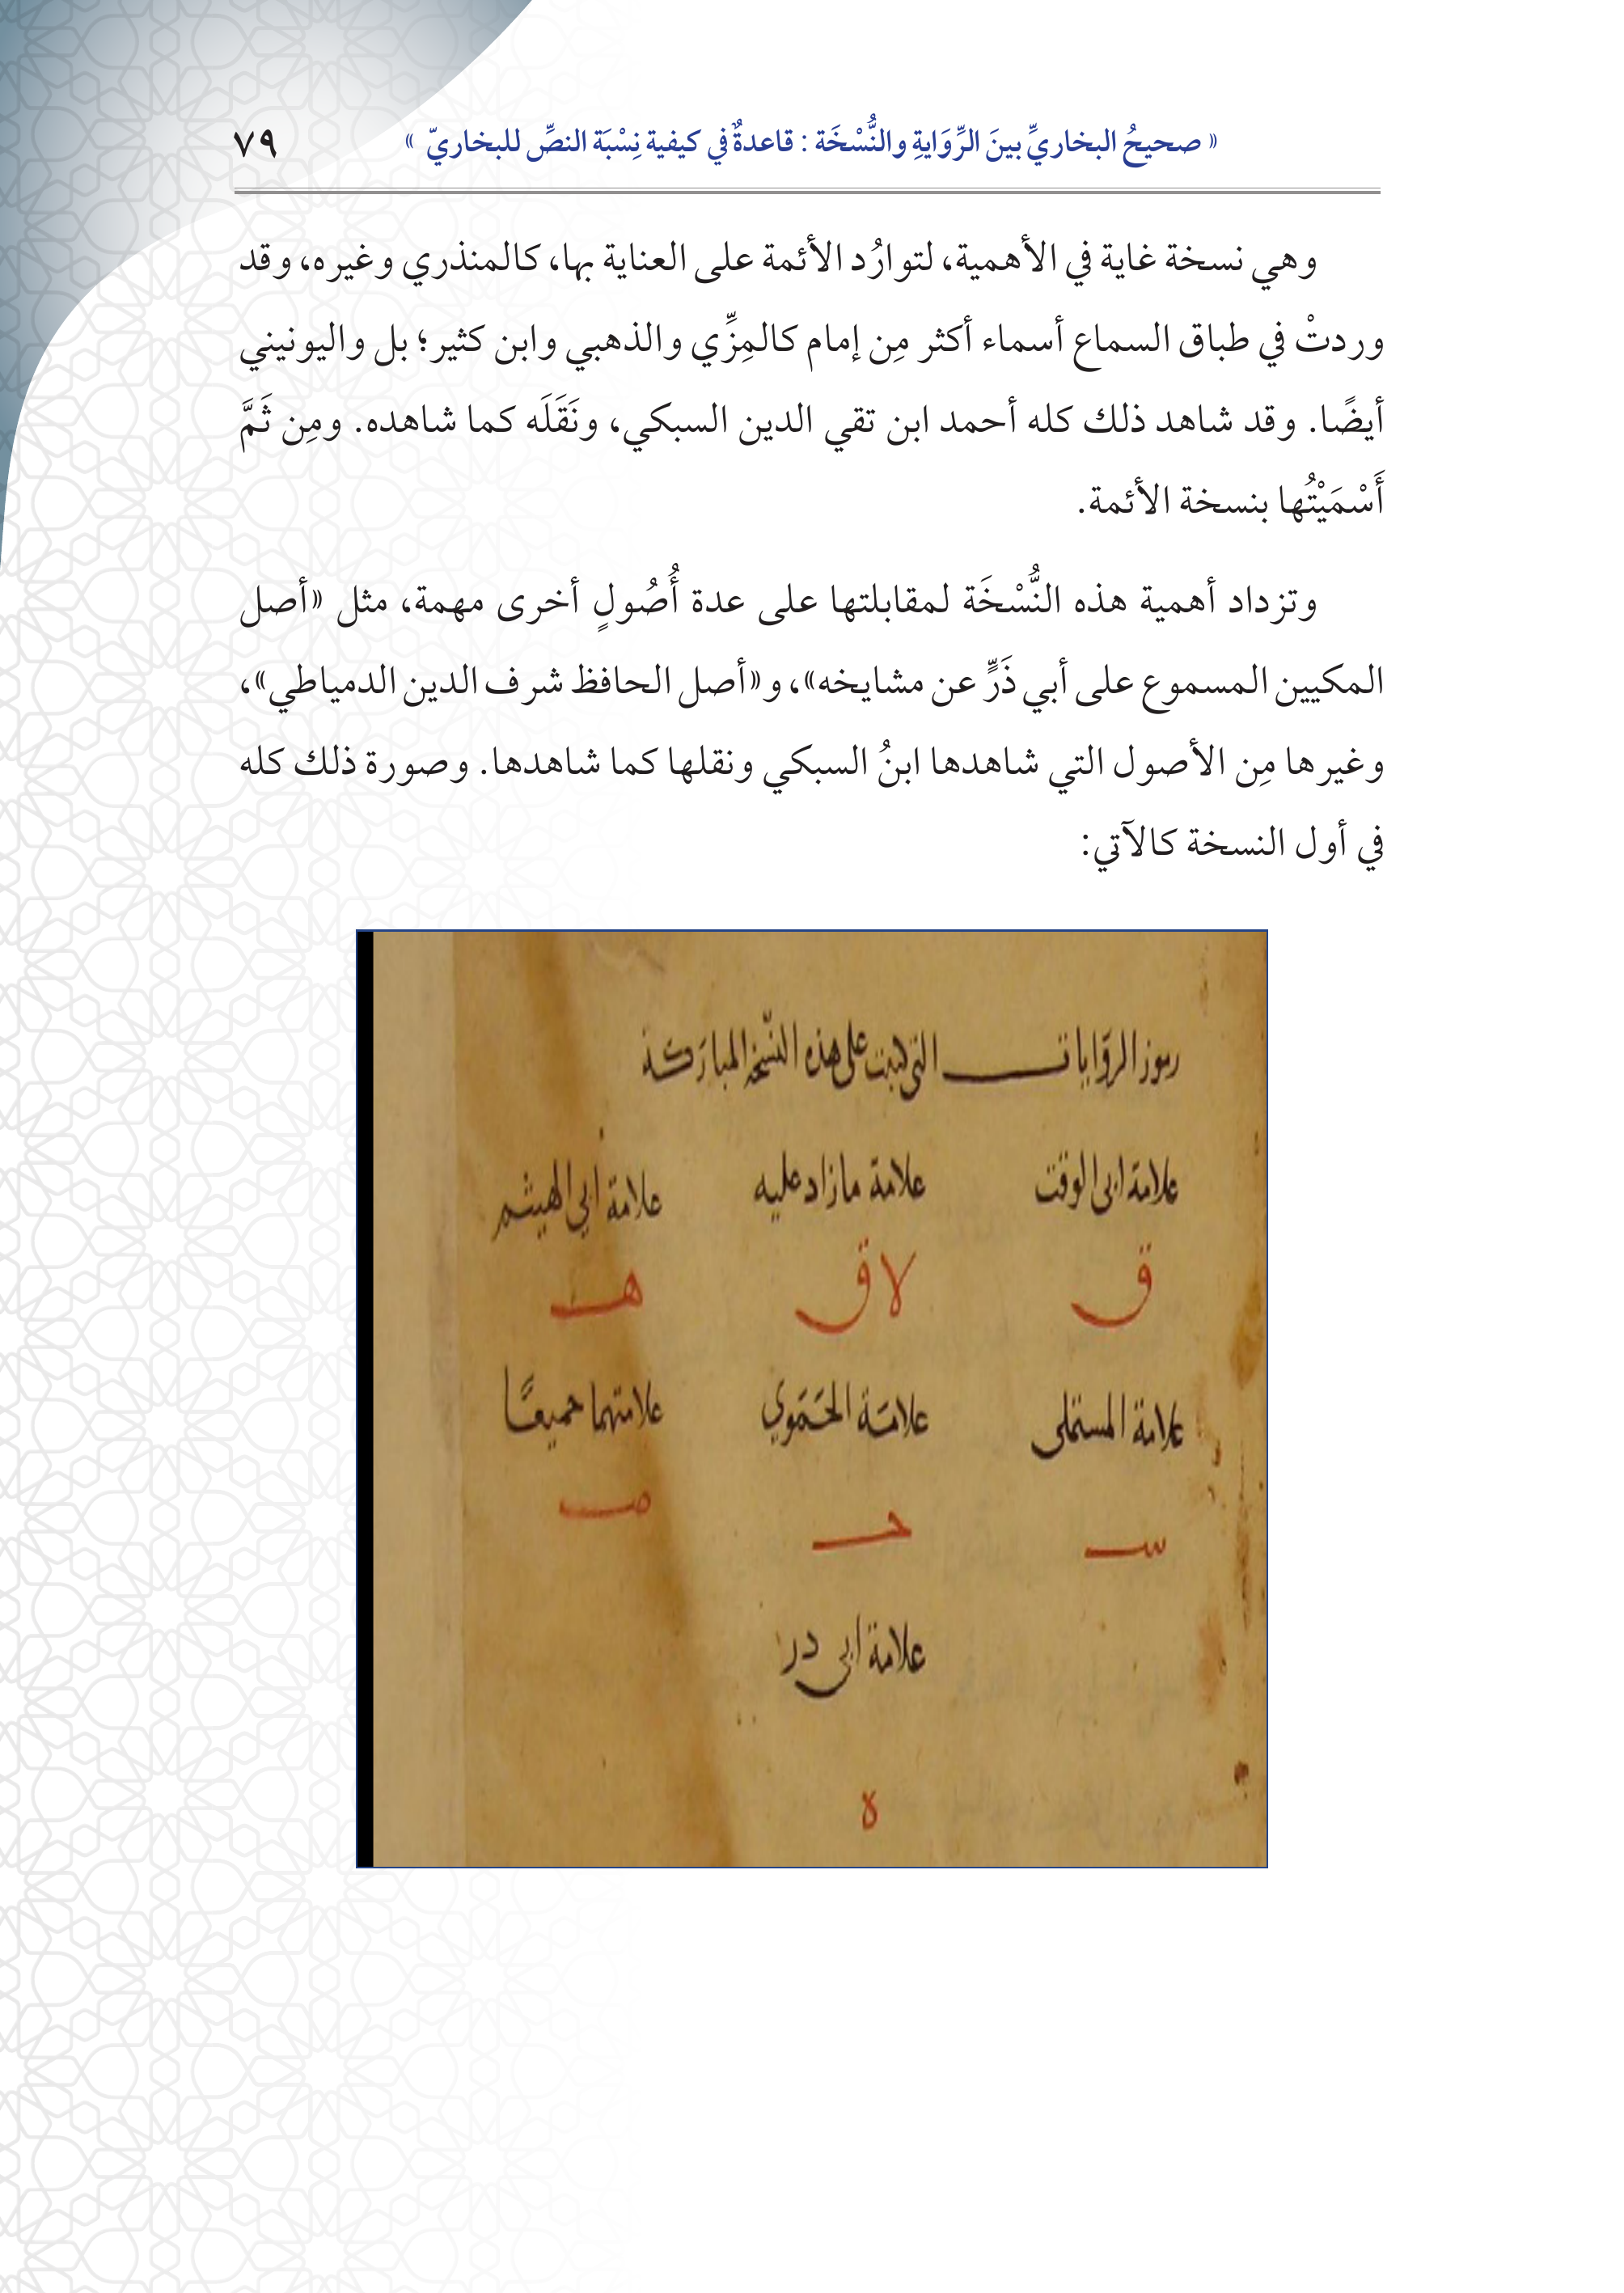 « صحيحُ البخاريِّ بينَ الرِّوَايةِ والنُّسْخَة : قاعدةٌ في كيفية نِسْبَة النصِّ للبخاريّ »
٧٩
وهي نسخة غاية في الأهمية، لتوارُد الأئمة على العناية بها، كالمنذري وغيره، وقد
وردتْ في طباق السماع أسماء أكثر مِن إمام كالمِزِّي والذهبي وابن كثير؛ بل واليونيني
أيضًا. وقد شاهد ذلك كله أحمد ابن تقي الدين السبكي، ونَقَلَه كما شاهده. ومِن ثَمَّ
أَسْمَيْتُها بنسخة الأئمة.
وتزداد أهمية هذه النُّسْخَة لمقابلتها على عدة أُصُولٍ أخرى مهمة، مثل «أصل
المكيين المسموع على أبي ذَرٍّ عن مشايخه»، و«أصل الحافظ شرف الدين الدمياطي»،
وغيرها مِن الأصول التي شاهدها ابنُ السبكي ونقلها كما شاهدها. وصورة ذلك كله
في أول النسخة كالآتي:
رموز الروايات التي كتبت على هذه النسخة المباركة
علامة ابى الوقت علامة مازاد عليه علامة ابي الهيثم
ق لا ق هـ
علامة المستملى علامة الحَمَوي علامتهما جميعًا
سـ حـ صـ
علامة ابى در
ه